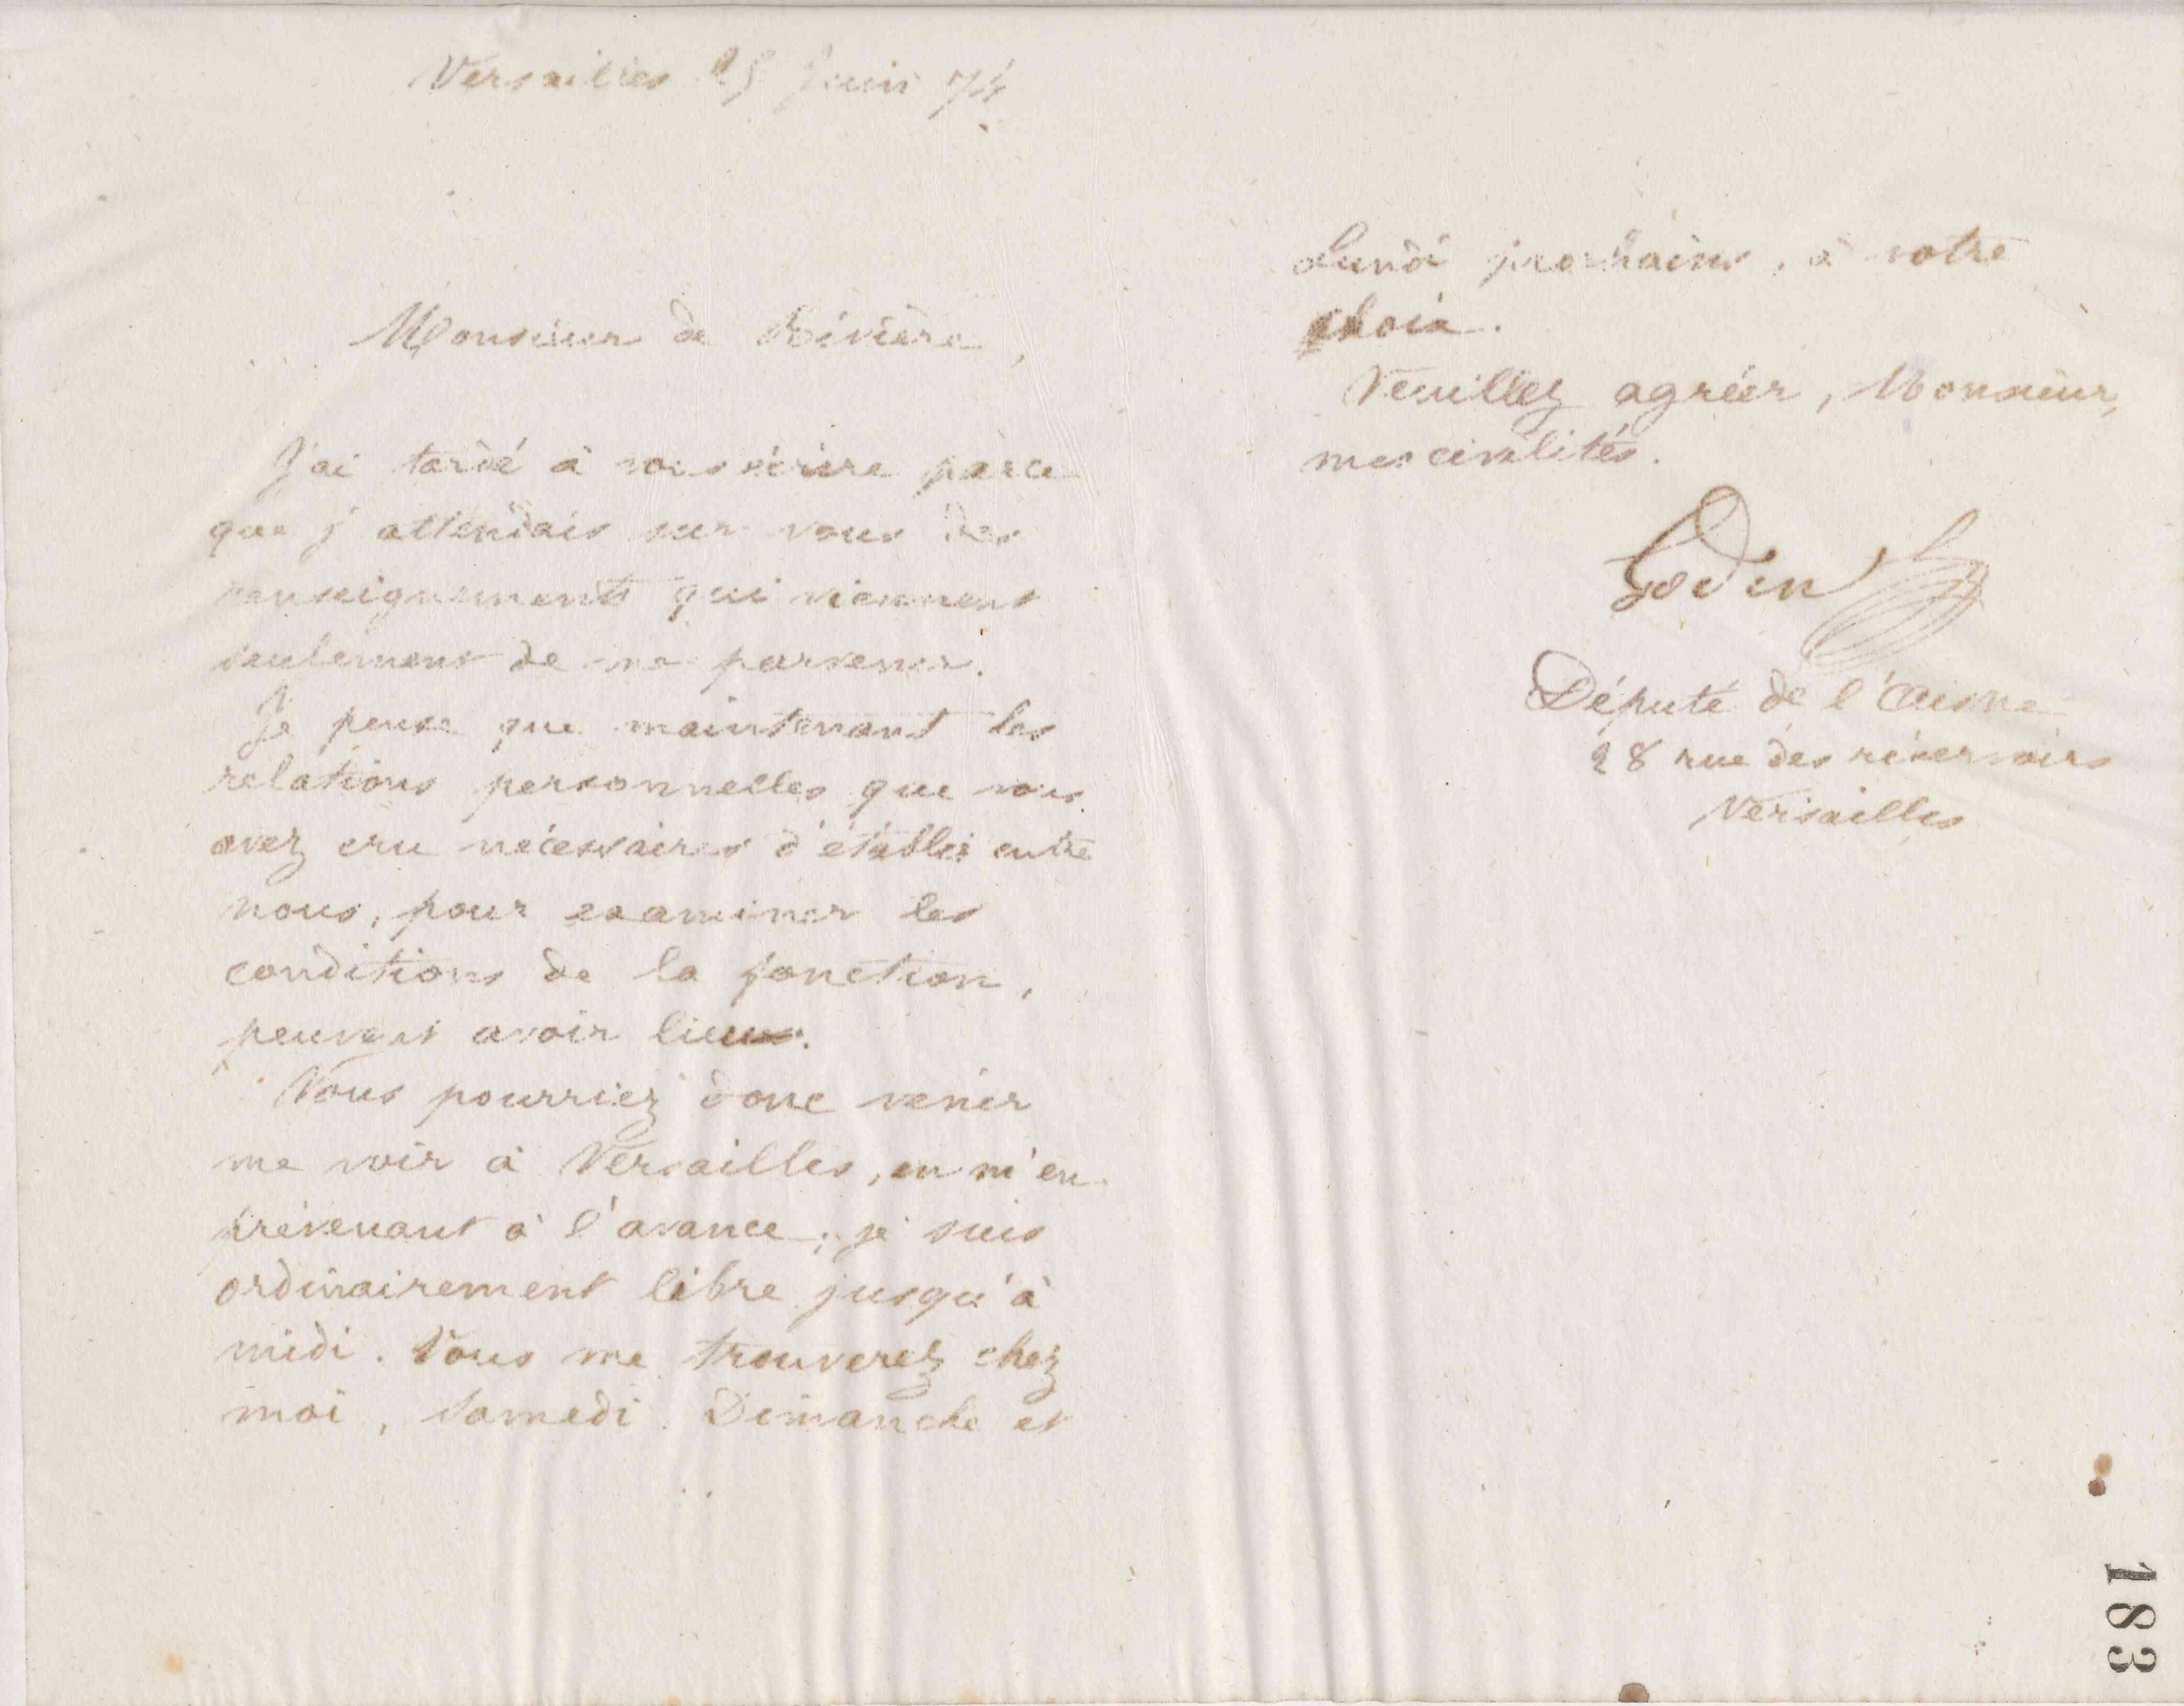 Versailles 25 Juin 74
Monsieur de Rivière,
J'ai tardé à vous écrire parce
que j'attendais sur vous des
renseignements qui viennent
seulement de me parvenir.
Je pense que maintenant les
relations personnelles que vous
avez cru nécessaires d'établir entre
nous, pour examiner les
conditions de la fonction,
peuvent avoir lieu.
Vous pourriez donc venir
me voir à Versailles, en m'en
prévenant à l'avance; je suis
ordinairement libre jusqu'à
midi. Vous me trouverez chez
moi, Samedi. Dimanche et
Lundi prochains, à votre
choix.
Veuillez agréer, Monsieur,
mes civilités.
Godin
Député de l'Aisne
28 rue des réservoirs
Versailles
183